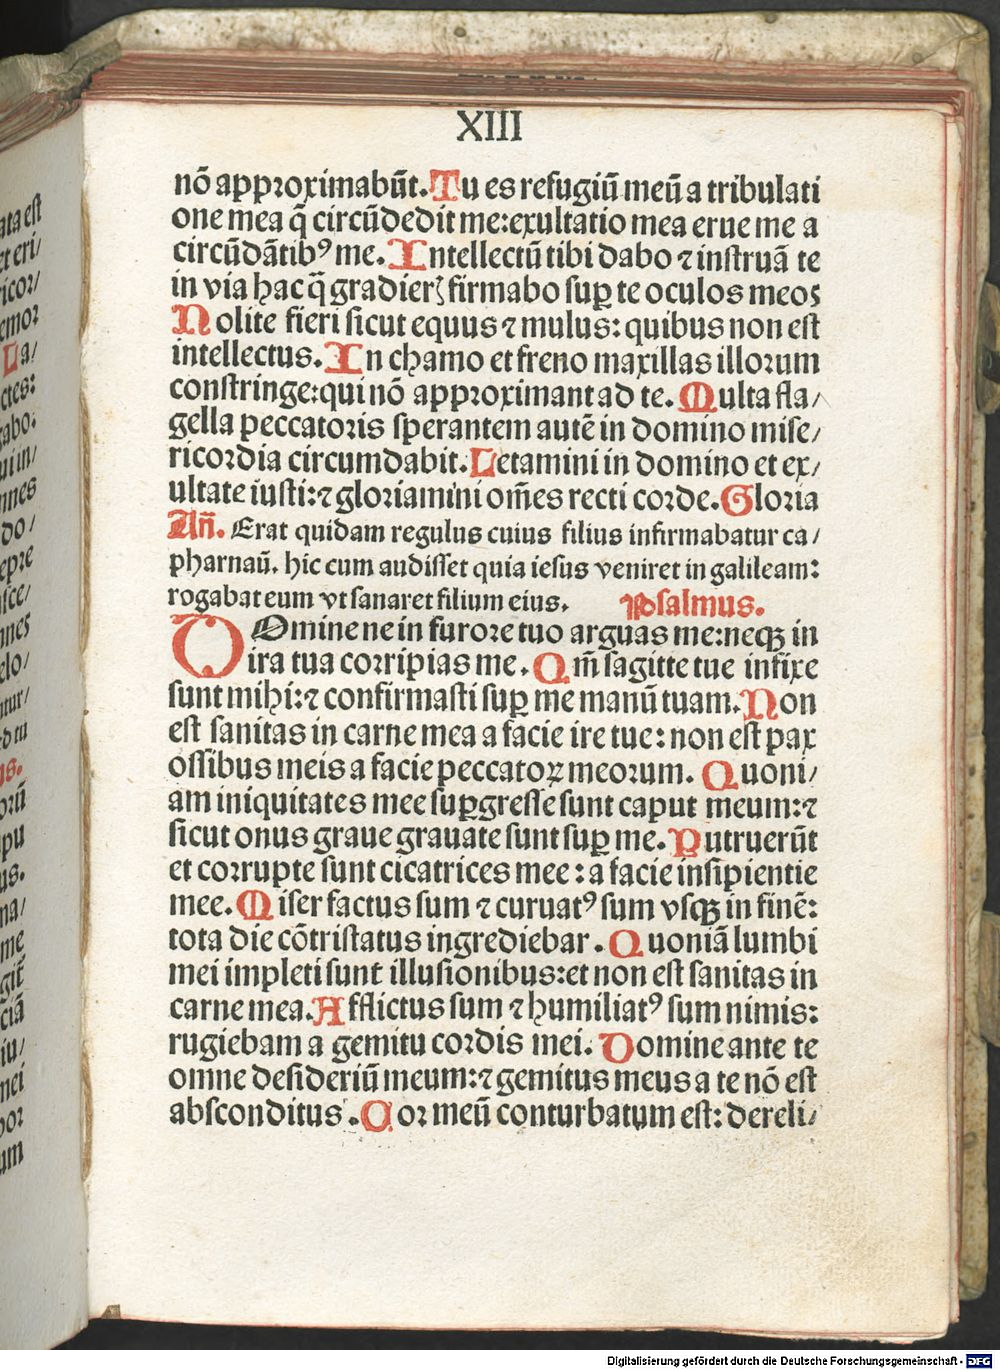 XIII
nõ approximabũt. Tu es refugiũ meũ a tribulati
one mea q̃ circũdedit me: exultatio mea erue me a
circũdãtibꝰ me. Intellectũ tibi dabo ⁊ instruã te
in via hac q̃ gradierꝭ firmabo suꝑ te oculos meos
Nolite fieri sicut equus ⁊ mulus: quibus non est
intellectus. In chamo et freno maxillas illorum
constringe: qui nõ approximant ad te. Multa fla/
gella peccatoris sperantem autẽ in domino mise/
ricordia circumdabit. Letamini in domino et ex/
ultate iusti: ⁊ gloriamini om̃es recti corde. Gloria
Añ. Erat quidam regulus cuius filius infirmabatur ca/
pharnaũ. hic cum audisset quia iesus veniret in galileam:
rogabat eum vt sanaret filium eius. Psalmus.
DOmine ne in furore tuo arguas me: neqꝫ in
ira tua corripias me. Qm̃ sagitte tue infixe
sunt mihi: ⁊ confirmasti suꝑ me manũ tuam. Non
est sanitas in carne mea a facie ire tue: non est pax
ossibus meis a facie peccatoꝝ meorum. Quoni/
am iniquitates mee suꝑgresse sunt caput meum: ⁊
sicut onus graue grauate sunt suꝑ me. Putruerũt
et corrupte sunt cicatrices mee: a facie insipientie
mee. Miser factus sum ⁊ curuatꝰ sum vsqꝫ in finẽ:
tota die cõtristatus ingrediebar. Quoniã lumbi
mei impleti sunt illusionibus: et non est sanitas in
carne mea. Afflictus sum ⁊ humiliatꝰ sum nimis:
rugiebam a gemitu cordis mei. Domine ante te
omne desideriũ meum: ⁊ gemitus meus a te nõ est
absconditus. Cor meũ conturbatum est: dereli/
Digitalisierung gefördert durch die Deutsche Forschungsgemeinschaft - DFG